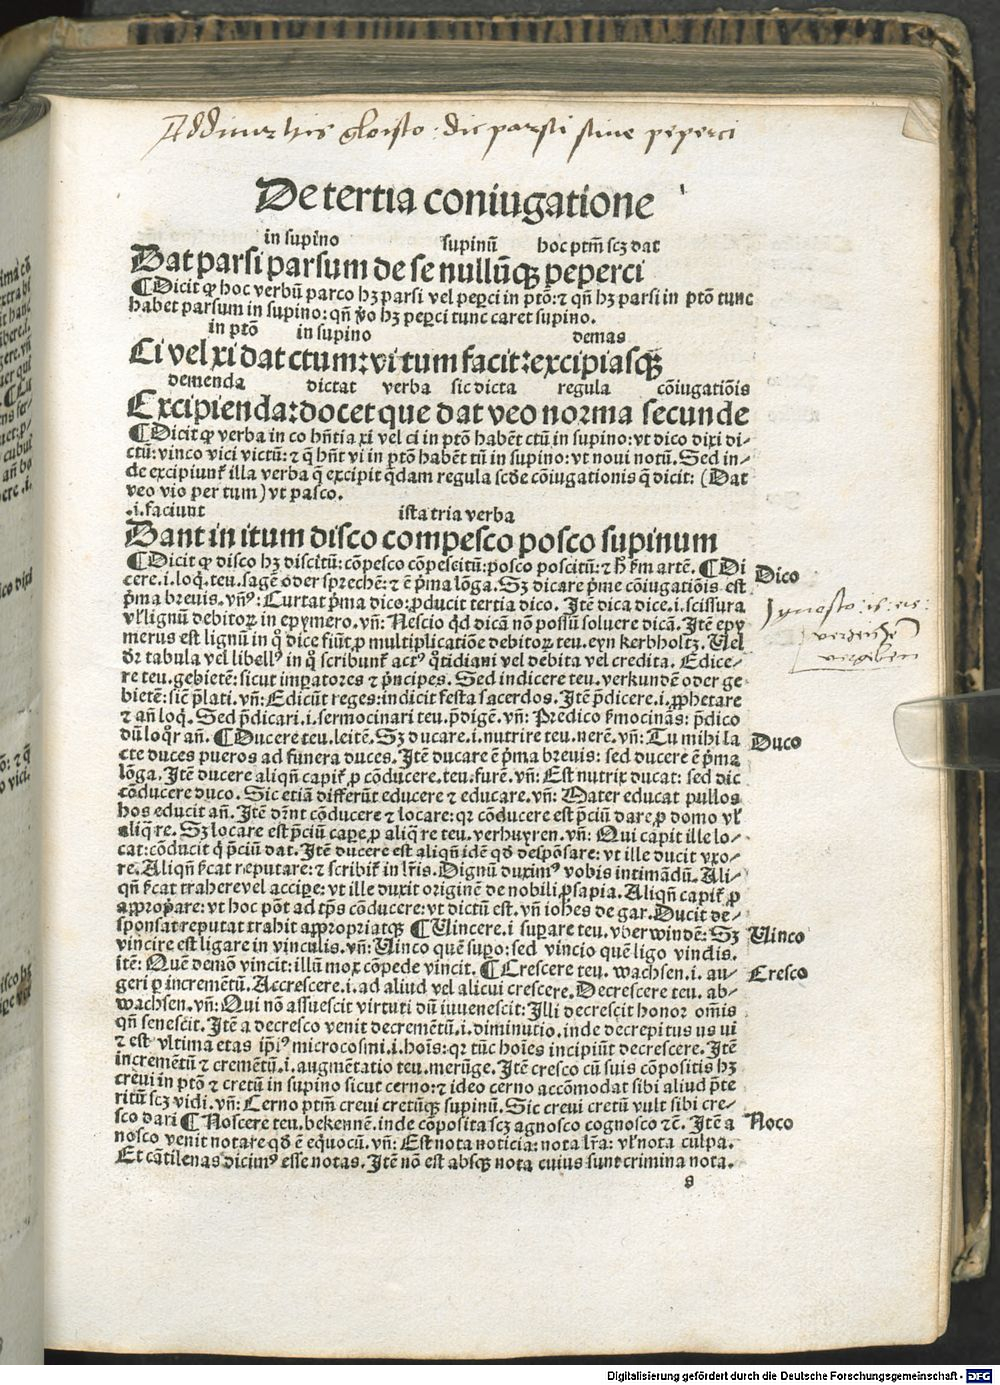 De tertia coniugatione
in supino supinū hoc ptm̄ scꝫ dat
Dat parsi parsum de se nullūqꝫ peperci
¶Dicit ꝙ hoc verbū parco hꝫ parsi vel peꝑci in ptō: ⁊ qn̄ hꝫ parsi in ptō tunc
habet parsum in supino: qn̄ ꝟo hꝫ peꝑci tunc caret supino.
in ptō in supino demas
Ci vel xi dat ctum: vi tum facit: excipiasqꝫ
demenda dictat verba sic dicta regula cōiugatiōis
Excipienda: docet que dat veo norma secunde
¶Dicit ꝙ verba in co hn̄tia xi vel ci in ptō habēt ctū in supino: vt dico dixi di⸗
ctū: vinco vici victū: ⁊ q̄ hn̄t vi in ptō habēt tū in supino: vt noui notū. Sed in⸗
de excipiunt᷑ illa verba q̄ excipit q̄dam regula scd̄e cōiugationis q̄ dicit: (Dat
veo vio per tum) vt pasco.
.i. faciunt ista tria verba
Dant in itum disco compesco posco supinum
¶Dicit ꝙ disco hꝫ discitū: cōpesco cōpescitū: posco poscitū: ⁊ h̄ ẜm artē. ¶Di
cere .i. loq̄. teu. sagē oder sprechē: ⁊ ē p̄ma lōga. Sꝫ dicare p̄me cōiugatiōis est
p̄ma breuis. vn̄ꝰ: Curtat p̄ma dico: ꝓducit tertia dico. Itē dica dice .i. scissura
vl̓ lignū debitoꝝ in epymero. vn̄: Nescio qd̄ dicā nō possū soluere dicā. Itē epy
merus est lignū in q̊ dice fiūt ꝑ multiplicatiōe debitoꝝ teu. eyn kerbholtꝫ. Uel
dr̄ tabula vel libellꝰ in q̊ scribunt᷑ actꝰ q̄tidiani vel debita vel credita. Edice⸗
re teu. gebietē: sicut imꝑatores ⁊ p̄ncipes. Sed indicere teu. verkundē oder ge
bietē: sic p̄lati. vn̄: Edicūt reges: indicit festa sacerdos. Itē p̄dicere .i. ꝓphetare
⁊ an̄ loq̄. Sed p̄dicari .i. sermocinari teu. p̄digē. vn̄: Predico ẜmocinās: p̄dico
dū loq̊r an̄. ¶Ducere teu. leitē. Sꝫ ducare .i. nutrire teu. nerē. vn̄: Tu mihi la
cte duces pueros ad funera duces. Itē ducare ē p̄ma breuis: sed ducere ē p̄ma
lōga. Itē ducere aliqn̄ capit᷑ ꝓ cōducere. teu. furē. vn̄: Est nutrix ducat: sed dic
cōducere duco. Sic etiā differūt educere ⁊ educare. vn̄: Mater educat pullos
hos educit an̄. Itē dr̄nt cōducere ⁊ locare: qꝛ cōducere est p̄ciū dare ꝓ domo vl̓
aliq̄ re. Sꝫ locare est p̄ciū caꝑe ꝓ aliq̄ re teu. verhuyren. vn̄: Qui capit ille lo⸗
cat: cōducit q̇ p̄ciū dat. Itē ducere est aliqn̄ idē qd̄ despōsare: vt ille ducit vxo⸗
re. Aliqn̄ ẜcat reputare: ⁊ scribit᷑ in lr̄is. Dignū duximꝰ vobis intimādū. Ali⸗
qn̄ ẜcat trahere vel acciꝑe: vt ille duxit originē de nobili ꝓsapia. Aliqn̄ capit᷑ ꝓ
aꝓpꝛiare: vt hoc pōt ad tp̄s cōducere: vt dictū est. vn̄ ioh̄es de gar. Ducit de⸗
sponsat reputat trahit appropriatqꝫ ¶Uincere .i. suꝑare teu. vberwindē: Sꝫ
vincire est ligare in vinculis. vn̄: Uinco quē suꝑo: sed vincio quē ligo vinclis.
itē: Quē demō vincit: illū mox cōpede vincit. ¶Crescere teu. wachsen .i. au⸗
geri ꝑ incremētū. Accrescere .i. ad aliud vel alicui crescere. Decrescere teu. ab⸗
wachsen. vn̄: Qui nō assuescit virtuti dū iuuenescit: Illi decrescit honor om̄is
qn̄ senescit. Itē a decresco venit decremētū .i. diminutio. inde decrepitus us ui
⁊ est vltima etas ip̄iꝰ microcosmi .i. hoīs: qꝛ tūc hoīes incipiūt decrescere. Itē
incremētū ⁊ cremētū .i. augmētatio teu. merūge. Itē cresco cū suis cōpositis hꝫ
creui in ptō ⁊ cretū in supino sicut cerno: ⁊ ideo cerno accōmodat sibi aliud p̄te
ritū scꝫ vidi. vn̄: Cerno ptm̄ creui cretūqꝫ supinū. Sic creui cretū vult sibi cre⸗
sco dari ¶Noscere teu. bekennē. inde cōposita scꝫ agnosco cognosco ⁊c̄. Itē a
nosco venit notare qd̄ ē equocū. vn̄: Est nota noticia: nota lr̄a: vl̓ nota culpa.
Et cātilenas dicimꝰ esse notas. Itē nō est absqꝫ nota cuius sunt crimina nota.
Dico
Duco
Uinco
Cresco
Noco
Digitalisierung gefördert durch die Deutsche Forschungsgemeinschaft - DFG